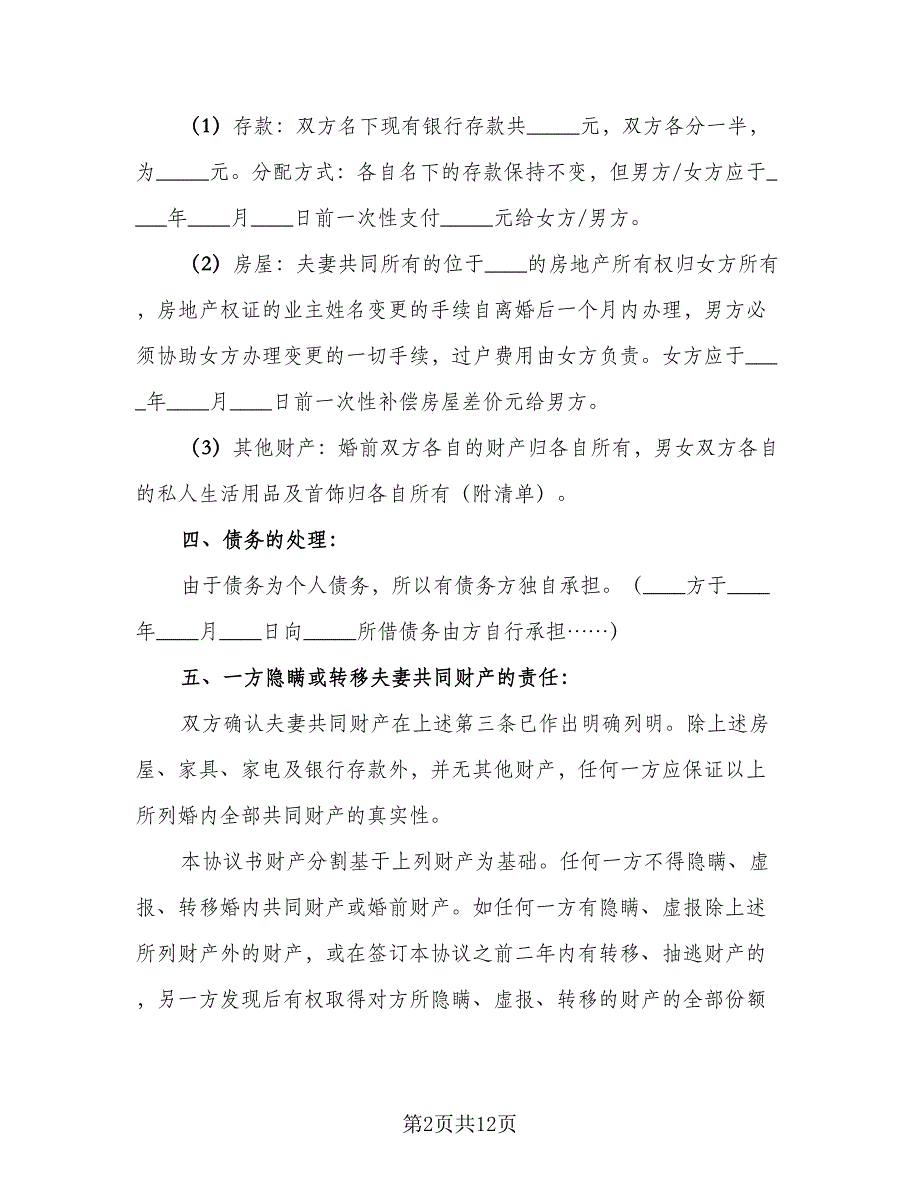 （1）存款：双方名下现有银行存款共_____元，双方各分一半，
为_____元。分配方式：各自名下的存款保持不变，但男方/女方应于_
___年____月____日前一次性支付_____元给女方/男方。
（2）房屋：夫妻共同所有的位于____的房地产所有权归女方所有
，房地产权证的业主姓名变更的手续自离婚后一个月内办理，男方必
须协助女方办理变更的一切手续，过户费用由女方负责。女方应于___
_年____月____日前一次性补偿房屋差价元给男方。
（3）其他财产：婚前双方各自的财产归各自所有，男女双方各自
的私人生活用品及首饰归各自所有（附清单）。
四、债务的处理：
由于债务为个人债务，所以有债务方独自承担。（____方于____
年____月____日向_____所借债务由方自行承担……）
五、一方隐瞒或转移夫妻共同财产的责任：
双方确认夫妻共同财产在上述第三条已作出明确列明。除上述房
屋、家具、家电及银行存款外，并无其他财产，任何一方应保证以上
所列婚内全部共同财产的真实性。
本协议书财产分割基于上列财产为基础。任何一方不得隐瞒、虚
报、转移婚内共同财产或婚前财产。如任何一方有隐瞒、虚报除上述
所列财产外的财产，或在签订本协议之前二年内有转移、抽逃财产的
，另一方发现后有权取得对方所隐瞒、虚报、转移的财产的全部份额
第2页共12页